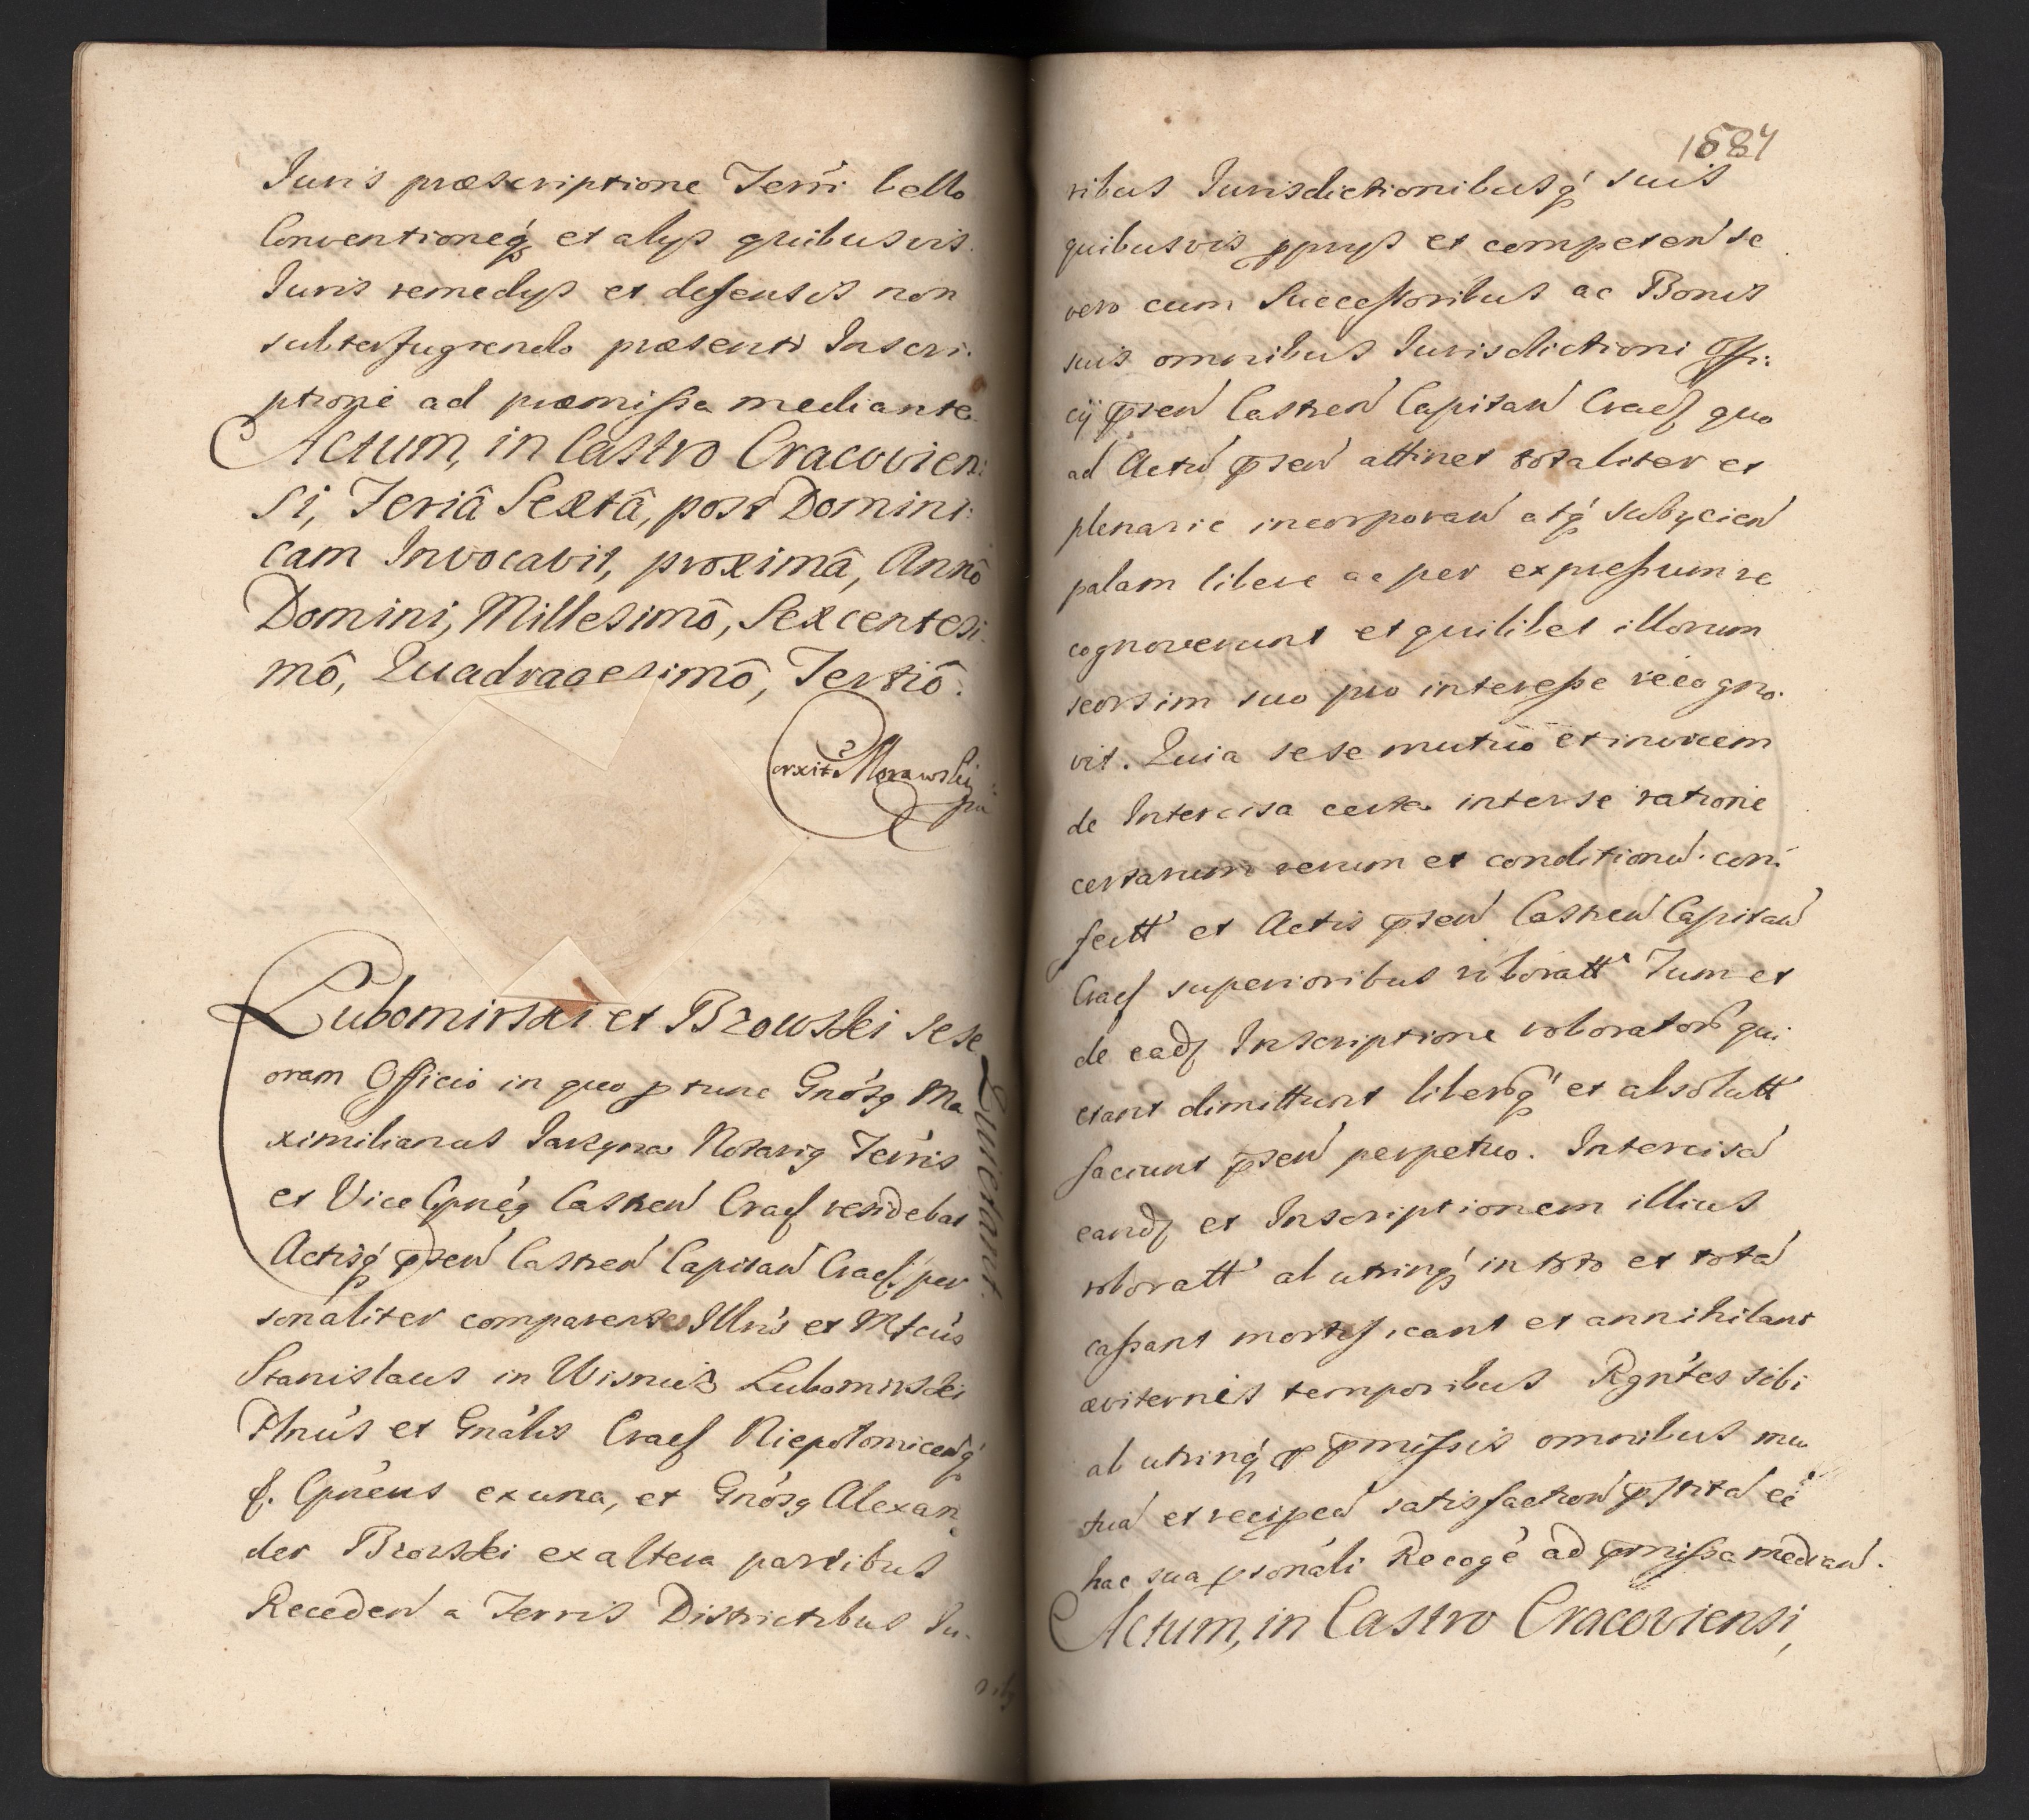 Juris præscriptione Terrī bello
Conventioneq́ et alys quibusvis
Juris remedys et defensis non
subterfugiendo præsenti Inscri:
ptione ad præmissa mediante.
Actum, in Castro Cracovien:
si, Feriâ Sextâ, post Domini:
cam Invocavit, proximâ, Annô
Domini, Millesimô, Sexcentesi:
mô, Quadragesimô, Tertiô.
Morawski
Lubomirski et Brzowski sese
Quietant.
oram Officio in quo p tunc Gnósq Ma
ximilianus Jarzyna Notariq Terris
et Vice Cpnéq Castren Cracf residebat
Actisq́ pſen Castren Capitan Cracf per
sonaliter comparentes Illrús et Mfcús
Stanislaus in Wisnicz Lubomirski
Plnús et Gnális Cracf Niepolomicenq́
f. Cpnéus ex una, et Gnósq Alexan
der Brzowski ex altera partibus
Receden a Terris Districtibus Ju-
riby
1587
ribus Jurisdictionibusq́ suis
quibusvis pprys et competen se
vero cum Successoribus ac Bonis
suis omnibus Jurisdictioni Offi:
cÿ pſen Castren Capitan Cracf quo
ad Actū pſen attinet totaliter et
plenarie incorporan atq́ subycien
palam libere ac per expressum re
cognoverunt et quilibet illorum
seorsim suo pro interesse recogno:
vit. Quia sese mutuo et invicem
de Intercisa certa inter se ratione
certarum rerum et conditionū con:
fectt et Actis pſen Castren Capitan
Cracf superioribus roboratt Tum et
de eadƺ Inscriptione roborator qui
etant dimittunt liberosq́ et absolutt
faciunt pſen perpetuo. Intercisā
eandƺ et Inscriptionem illius
roboratt ab utrinq́ in toto et totā
cassant mortificant et annihilant
æviternis temporibus Rgntés sibi
ab utrinq́ p pmissis omnibus mu
tuā et recipcā satisfaction pſtitā eē
hac sua psonáli Recogé ad pmissa median.
Actum, in Castro Cracoviensi,